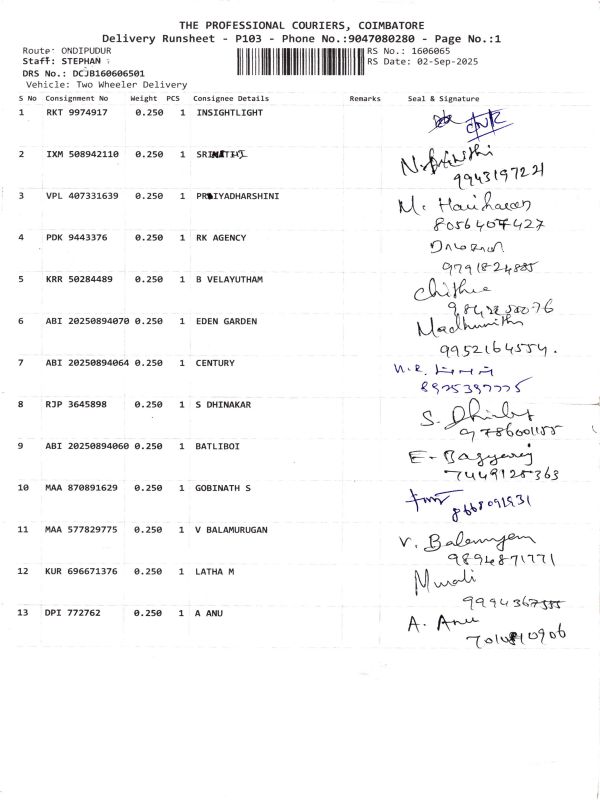 THE PROFESSIONAL COURIERS, COIMBATORE
Delivery Runsheet - P103 - Phone No.:9047080280 - Page No.:1
Route: ONDIPUDUR RS No.: 1606065
Staff: STEPHAN : RS Date: 02-Sep-2025
DRS No.: DCJB160606501
Vehicle: Two Wheeler Delivery
S No Consignment No Weight PCS Consignee Details Remarks Seal & Signature
1 RKT 9974917 0.250 1 INSIGHTLIGHT
2 IXM 508942110 0.250 1
9943197221
3 VPL 407331639 0.250 1 PRIYADHARSHINI M. Hariharan
8056407427
4 PDK 9443376 0.250 1 RK AGENCY
9791824885
5 KRR 50284489 0.250 1 B VELAYUTHAM Chithra
6 ABI 20250894070 0.250 1 EDEN GARDEN Madhumitha
9952164554.
7 ABI 20250894064 0.250 1 CENTURY
8 RJP 3645898 0.250 1 S DHINAKAR S.
9 ABI 20250894060 0.250 1 BATLIBOI E.
7449125363
10 MAA 870891629 0.250 1 GOBINATH S
8668091931
11 MAA 577829775 0.250 1 V BALAMURUGAN V.
9894871771
12 KUR 696671376 0.250 1 LATHA M Murali
9994367555
13 DPI 772762 0.250 1 A ANU A. Anu